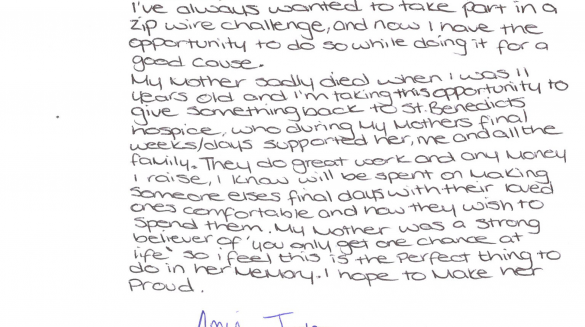 I've always wanted to take part in a
zip wire challenge, and now I have the
opportunity to do so while doing it for a
good cause.
My Mother sadly died when I was 11
years old and I'm taking this opportunity to
give something back to St. Benedicts
hospice, who during My Mothers final
weeks/days supported her, me and all the
family. They do great work and any Money
I raise, I know will be spent on Making
someone elses final days with their loved
ones comfortable and how they wish to
spend them. My Mother was a strong
believer of 'you only get one chance at
life' so i feel this is the perfect thing to
do in her Memory. I hope to Make her
Proud.